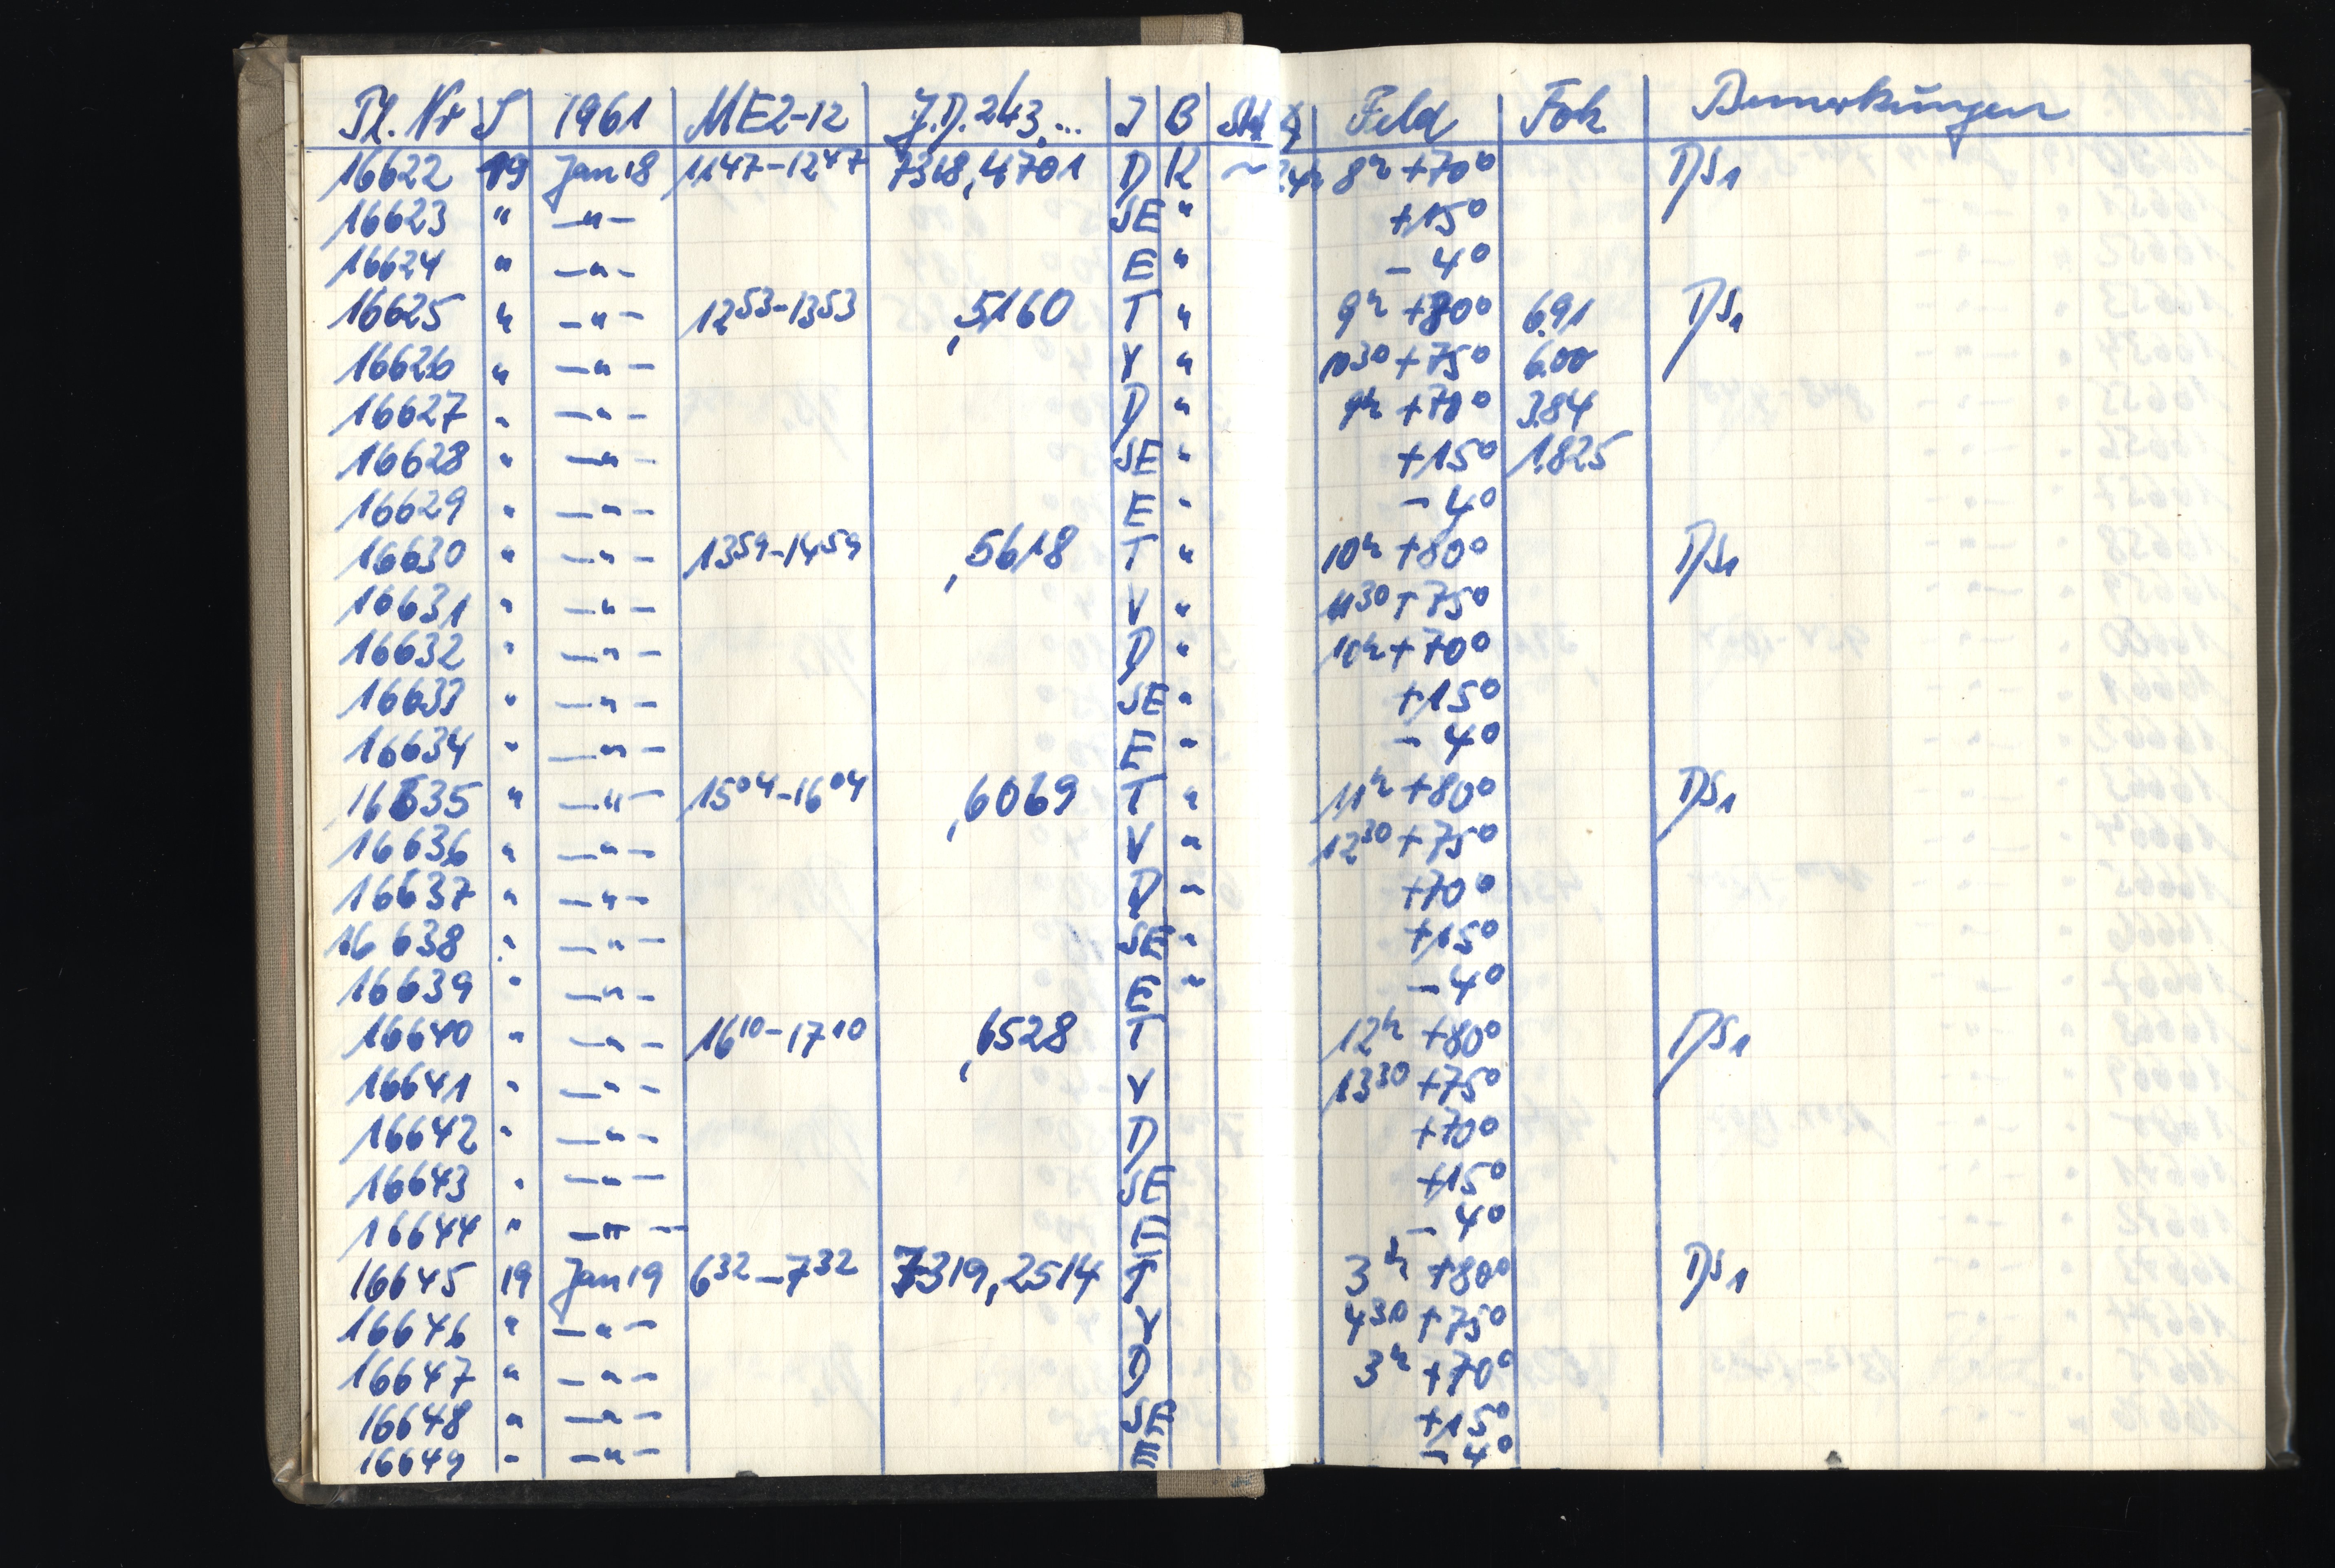 Pl. Nr S 1961 ME2-12 J.D. 243.... I B Feld Fok Bemerkungen
16622 19 Jan 18 11 47 - 12 47 7318,4701 D K ~ 24h 8h +70° DS1
16623 " —"— SE " +15°
16624 " —"— E " - 4°
16625 " —"— 12 53 - 13 53 ,5160 T " 9h +80° 6.91 DS1
16626 " —"— V " 10 30 +75° 6.00
16627 " —"— D " 9h +70° 3.84
16628 " —"— SE " +15° 1.825
16629 " —"— E " - 4°
16630 " —"— 13 59 - 14 59 ,5618 T " 10h +80° DS1
16631 " —"— V " 11 30 +75°
16632 " —"— D " 10h +70°
16633 " —"— SE " +15°
16634 " —"— E " - 4°
16635 " —"— 15 04 - 16 04 ,6069 T " 11h +80° DS1
16636 " —"— V " 12 30 +75°
16637 " —"— D " +70°
16638 " —"— SE " +15°
16639 " —"— E " - 4°
16640 " —"— 16 10 - 17 10 ,6528 T 12h +80° DS1
16641 " —"— V 13 30 +75°
16642 " —"— D +70°
16643 " —"— SE +15°
16644 " —"— E - 4°
16645 19 Jan 19 6 32 - 7 32 7319,2514 T 3h +80° DS1
16646 " —"— V 4 30 +75°
16647 " —"— D 3h +70°
16648 " —"— SE +15°
16649 " —"— E - 4°